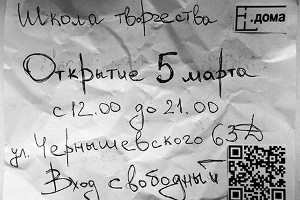 Школа творчества
Е.дома
Открытие 5 марта
с 12.00 до 21.00
ул. Чернышевского 63А
Вход свободный